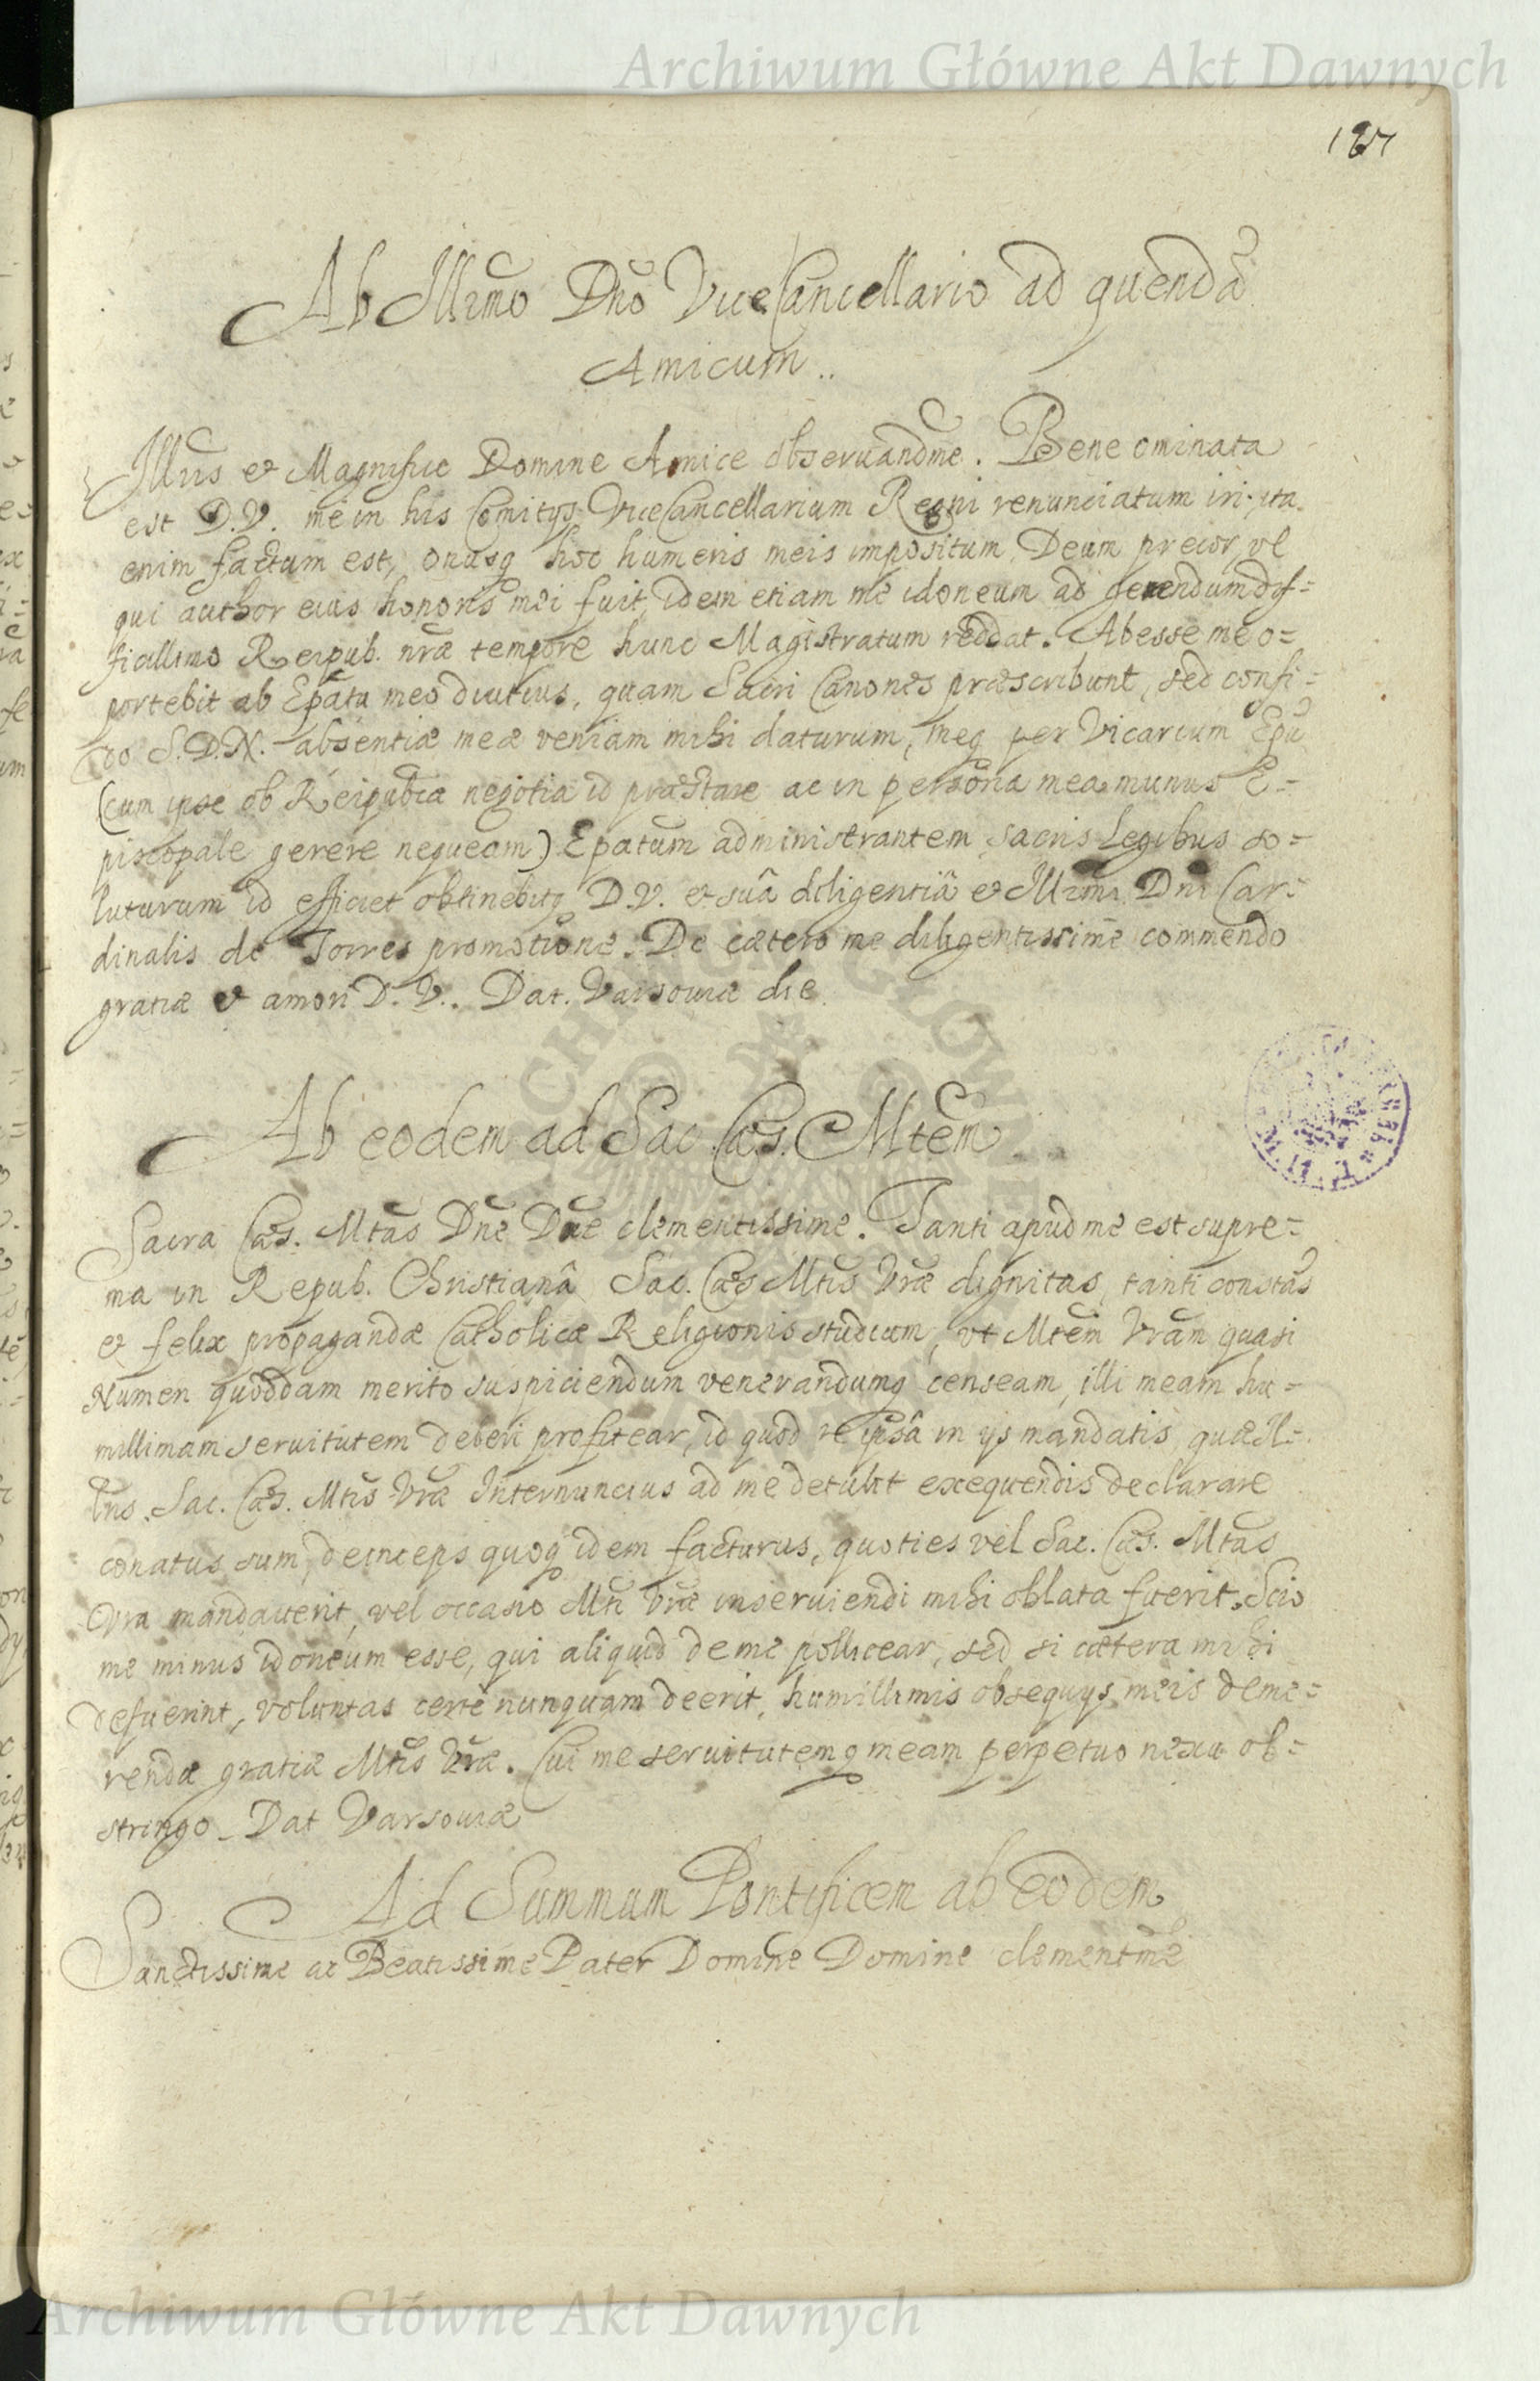 Archiwum Główne Akt Dawnych
187
Ab Illmo Dno ViceCancellario ad quendã
Amicum..
Illris et Magnifice Domine Amice observandme. Bene ominata
est D.V. me in his Comitijs ViceCancellarium Regni renunciatum iri, ita
enim factum est, onusq hoc humeris meis impositum, Deum precor, vt
qui author eius honoris mei fuit, idem etiam me idoneum ad gerendum dif=
ficillimo Reipub. nræ tempore hunc Magistratum reddat. Abesse me o=
portebit ab Epatu meo diutius, quam Sacri Canones præscribunt, sed confi=
do S.D.N. absentiæ meæ veniam mihi daturum, meq per Vicarium Epũ
(cum ipse ob Reipublcæ negotia id præstare ac in persona mea munus E=
piscopale gerere nequeam) Epatum administrantem sacris Legibus so=
luturum id efficiet obtinebitq D.V. et suâ diligentiâ et Illmi Dni Car=
dinalis de Torres promotione. De cætero me diligentissimè commendo
gratiæ et amori D.V.. Dat. Varsouiæ die
Ab eodem ad Sac. Cæs. Mtem
Sacra Cæs. Mtas Dne Dne clementissime. Tanti apud me est supre=
ma in Repub. Christianâ Sac. Cæs Mtis Vræ dignitas, tanti constãs
et felix propagandæ Catholicæ Religionis studium, vt Mtem Vram quasi
Numen quoddam merito suspiciendum venerandumq censeam, illi meam hu=
millimam seruitutem deberi profitear, id quod re ipsâ in ijs mandatis, quæ Il=
lris Sac. Cæs. Mtis Vræ Internuncius ad me detulit exequendis declarare
conatus sum, deinceps quoq idem facturus, quoties vel Sac. Cæs. Mtas
Vra mandauerit, vel occasio Mti Vræ inseruiendi mihi oblata fuerit. Scio
me minus idoneum esse, qui aliquid de me pollicear, sed si cætera mihi
defuerint, voluntas certè nunquam deerit, humillimis obsequijs meis deme=
rendæ gratiæ Mtis Vræ. Cui me seruitutemq meam perpetuo nexu ob=
stringo. Dat Varsouiæ
Ad Summum Pontificem ab Eodem
Sanctissime ac Beatissime Pater Domine Domine clementme
Archiwum Główne Akt Dawnych